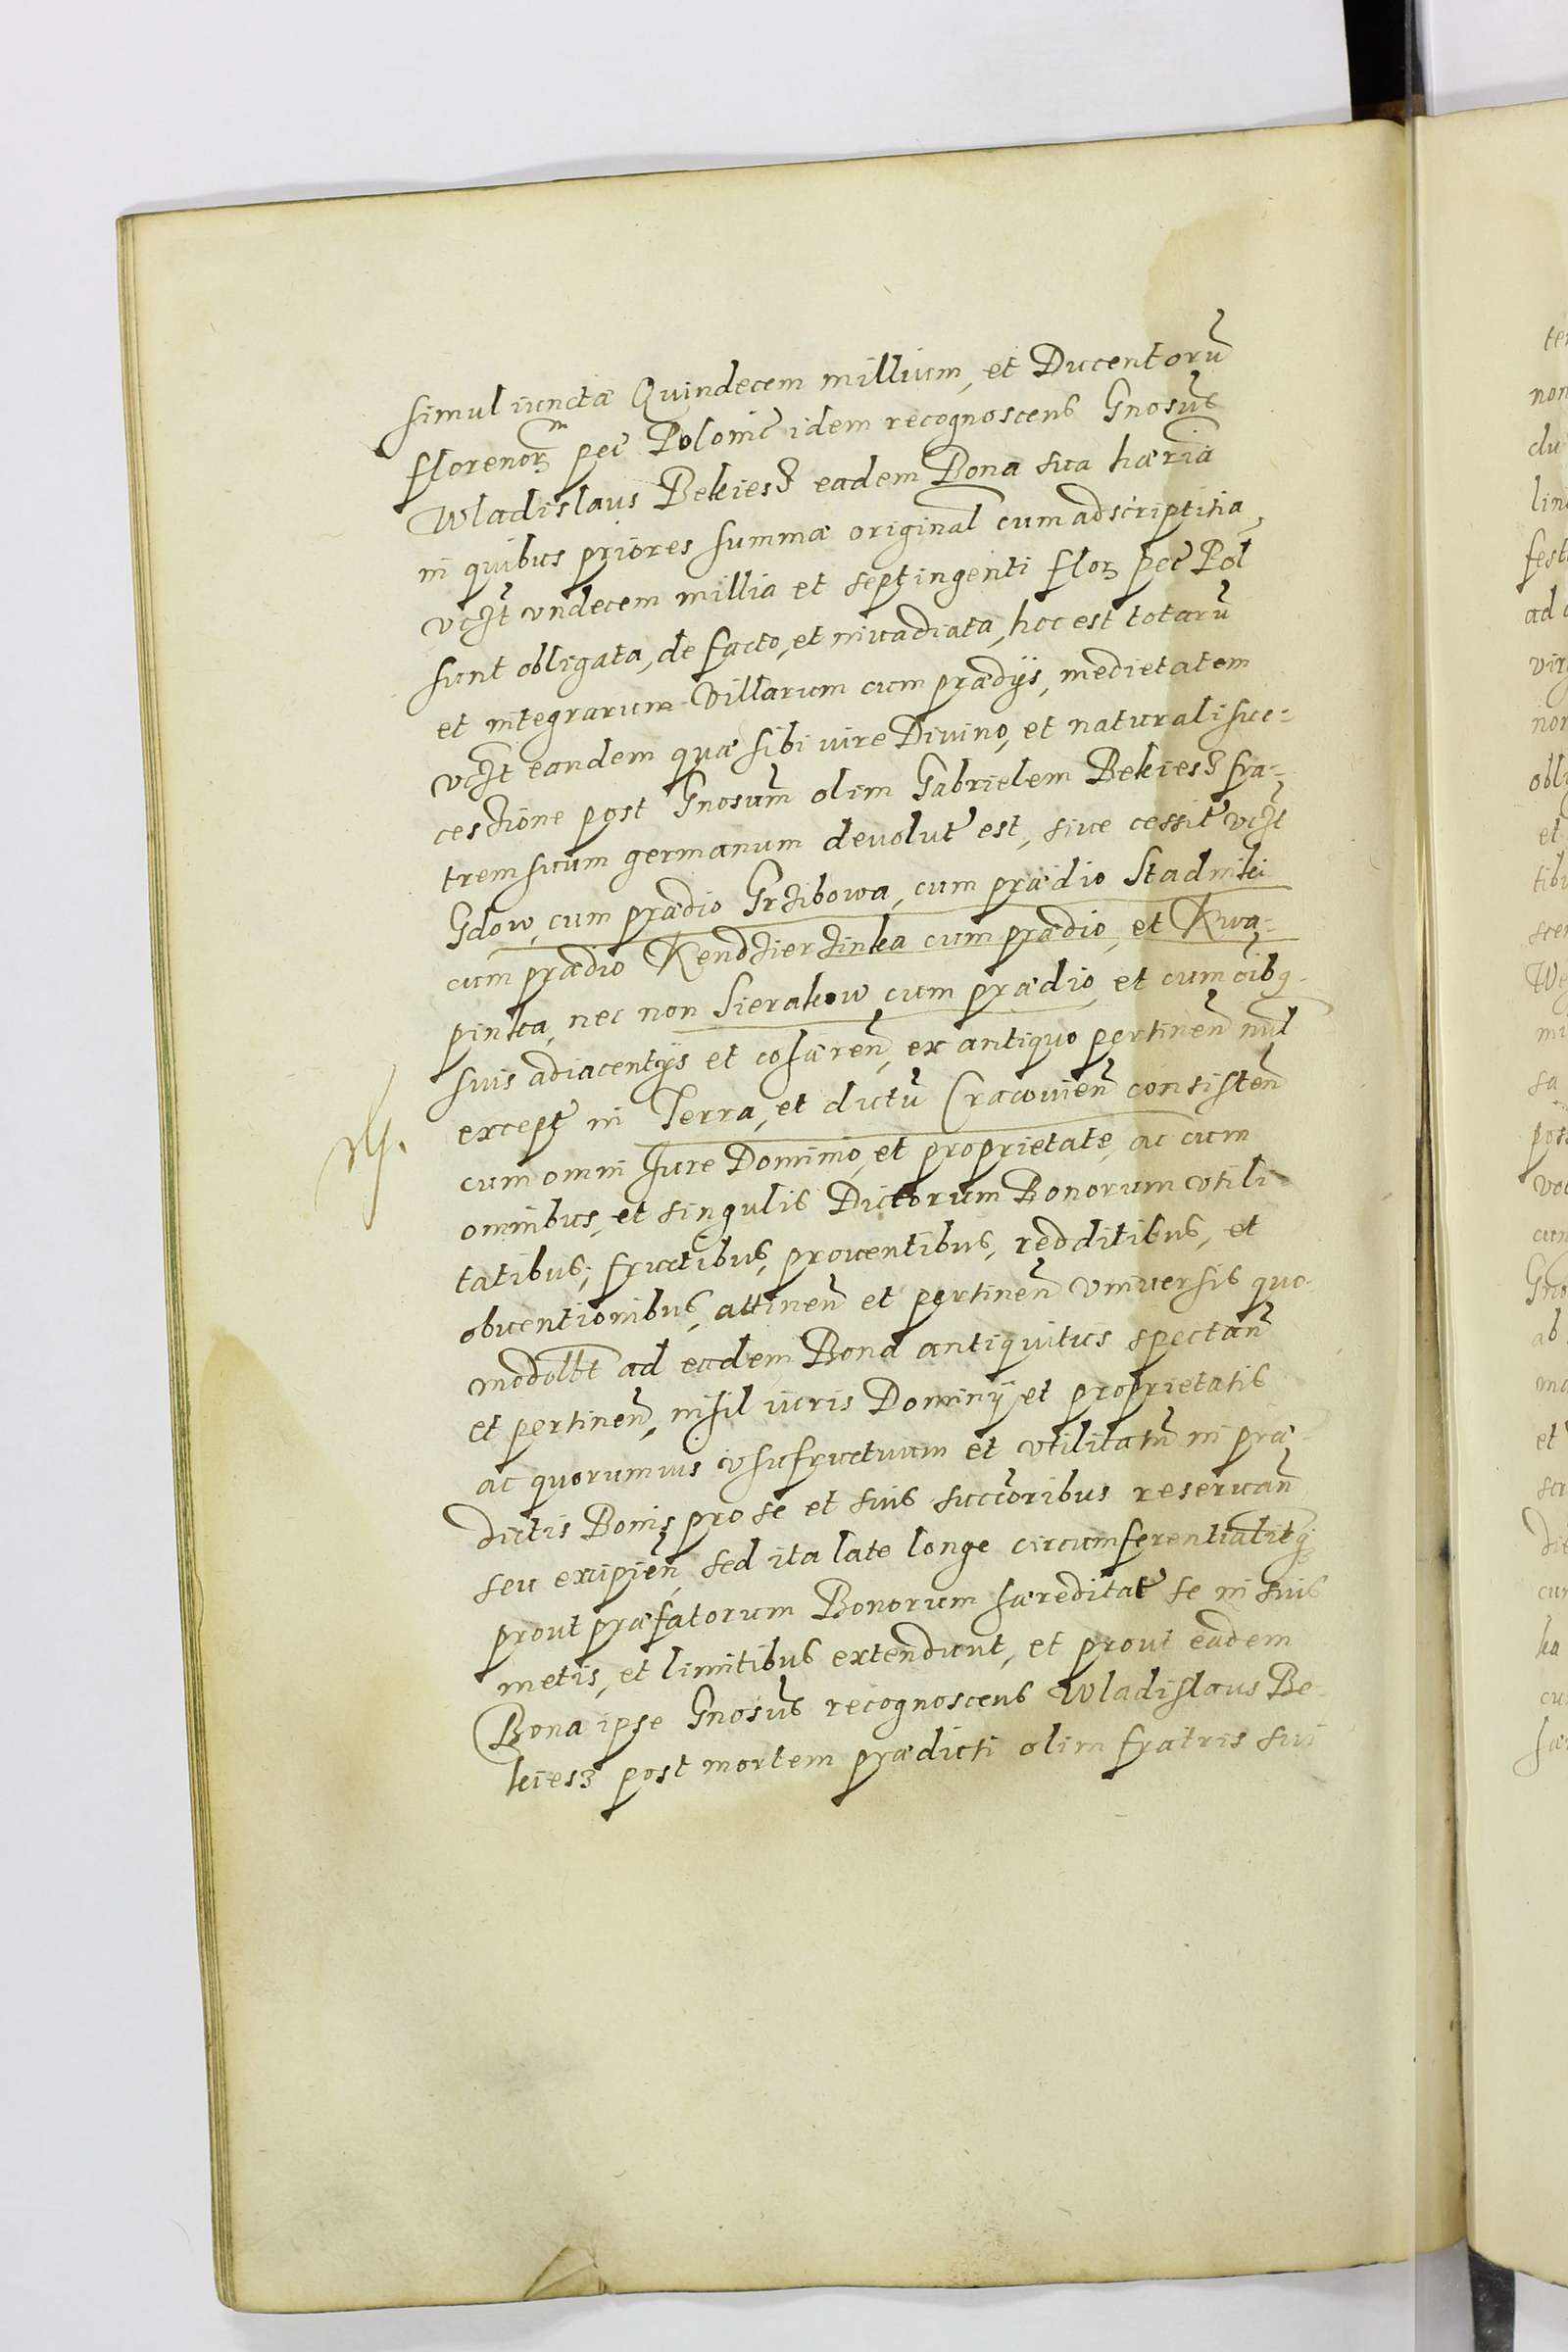 simul iunctæ Quindecem millium, et Ducentorũ
florenorꝫ pec̃ Polonic̃ idem recognoscens Gnosus̃
Wladislaus Bekiesz eadem Bona sua hærĩa
in quibus priores summæ original̃ cum adscriptitia,
vczt̃ vndecem millia et septingenti florꝫ pec̃ Pol̃
sunt obligata, de facto, et inuadiata, hoc est totarũ
et integrarum Villarum cum prædijs, medietatem
vczt̃ eandem quæ sibi iure Divino, et naturali suc-
cessione post Gnosum̃ olim Gabrielem Bekiesz fra-
trem suum germanum deuolut̃ est, siue cessit vczt̃
Gdow, cum prædio Grzibowa, cum prædio Stadniki
cum prædio Kendzierzinka cum prædio, et Kwa-
pinka, nec non Sierakow cum prædio, et cum oĩbꝫ
suis adiacentijs et cohæren̄, ex antiquo pertinen̄ nul̃
except̃ in Terra, et dictũ Cracouien̄ consisten̄
cum omni Iure Dominio, et proprietate, ac cum
omnibus, et singulis Dictorum Bonorum vtili-
tatibus, fructibus, prouentibus, redditibus, et
obuentionibus, attinen̄ et pertinen̄ vniuersis quo-
modolbt̃ ad eadem Bona antiquitus spectan̄
et pertinen̄, nihil iuris Dominij et proprietatis
ac quorumuis vsufructuum et vtilitatũ in præ-
dictis Bonis pro se et suis succ̃oribus reseruan̄
seu excipien̄, sed ita late longe circumferentialitꝗ̃
prout præfatorum Bonorum hæreditat̃ se in suis
metis, et limitibus extendunt, et prout eadem
Bona ipse Gnosus̃ recognoscens Wladislaus Be-
kiesz post mortem prædicti olim fratris sui
ter
non
du
lini
fest
ad
vir
nor
obli
et
tibu
scen
We
mi
sa
pos
voc
cum
Gno
ab
mo
et
scr
Die
cum
ka
cu
hæ